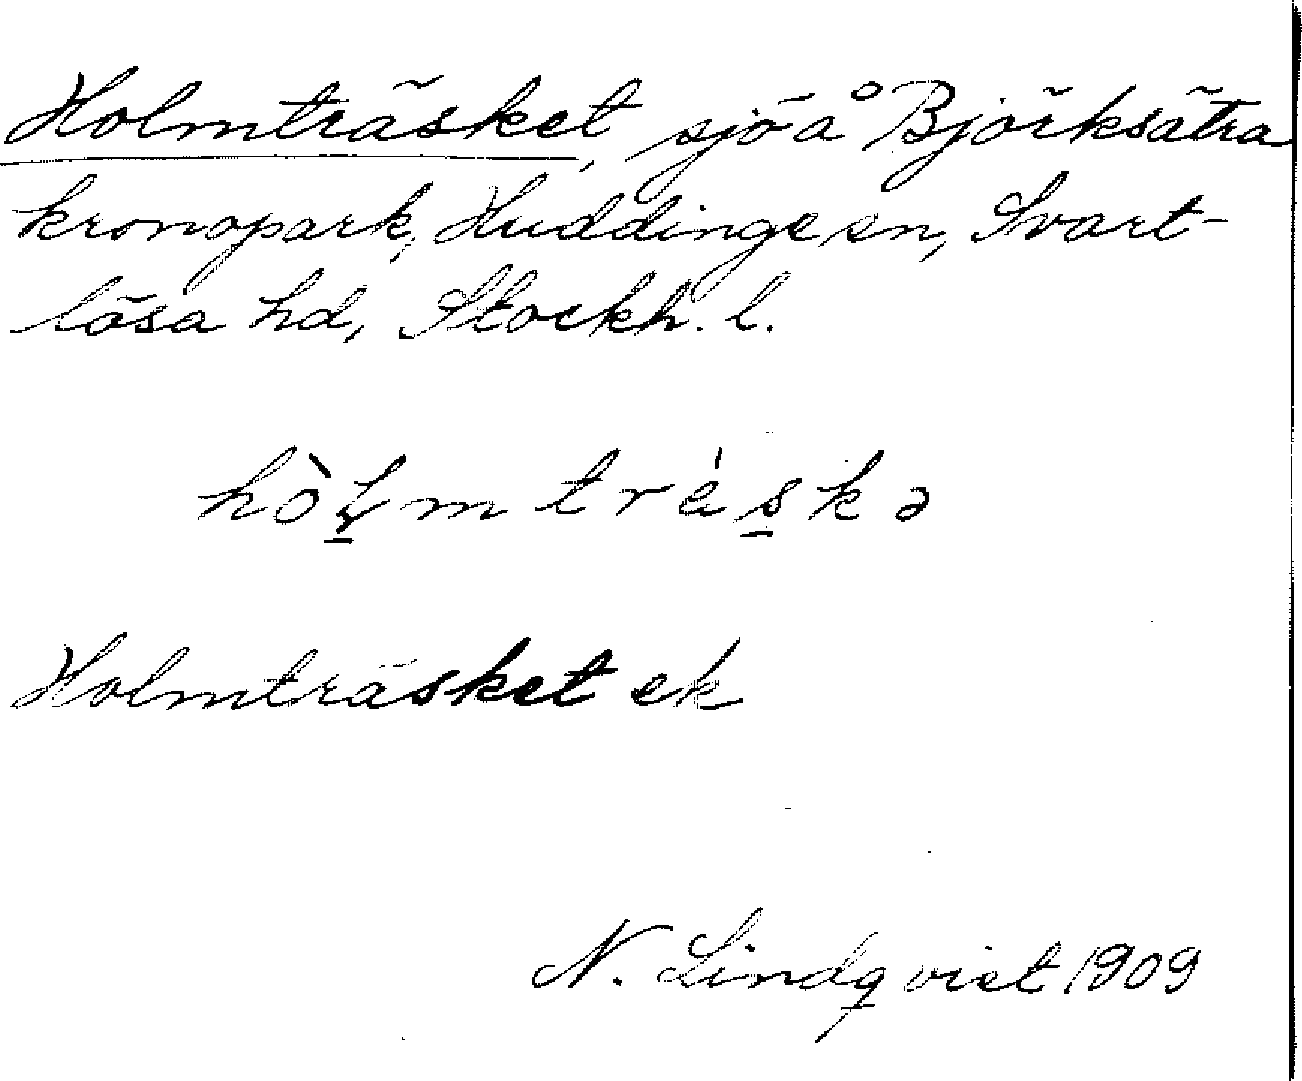 Holmträsket, sjö å Björksätra
kronopark, Huddinge sn, Svart-
lösa hd, Stockh. l.
hòl̠mtrás̠kə
Holmträsket ek
N. Lindqvist 1909